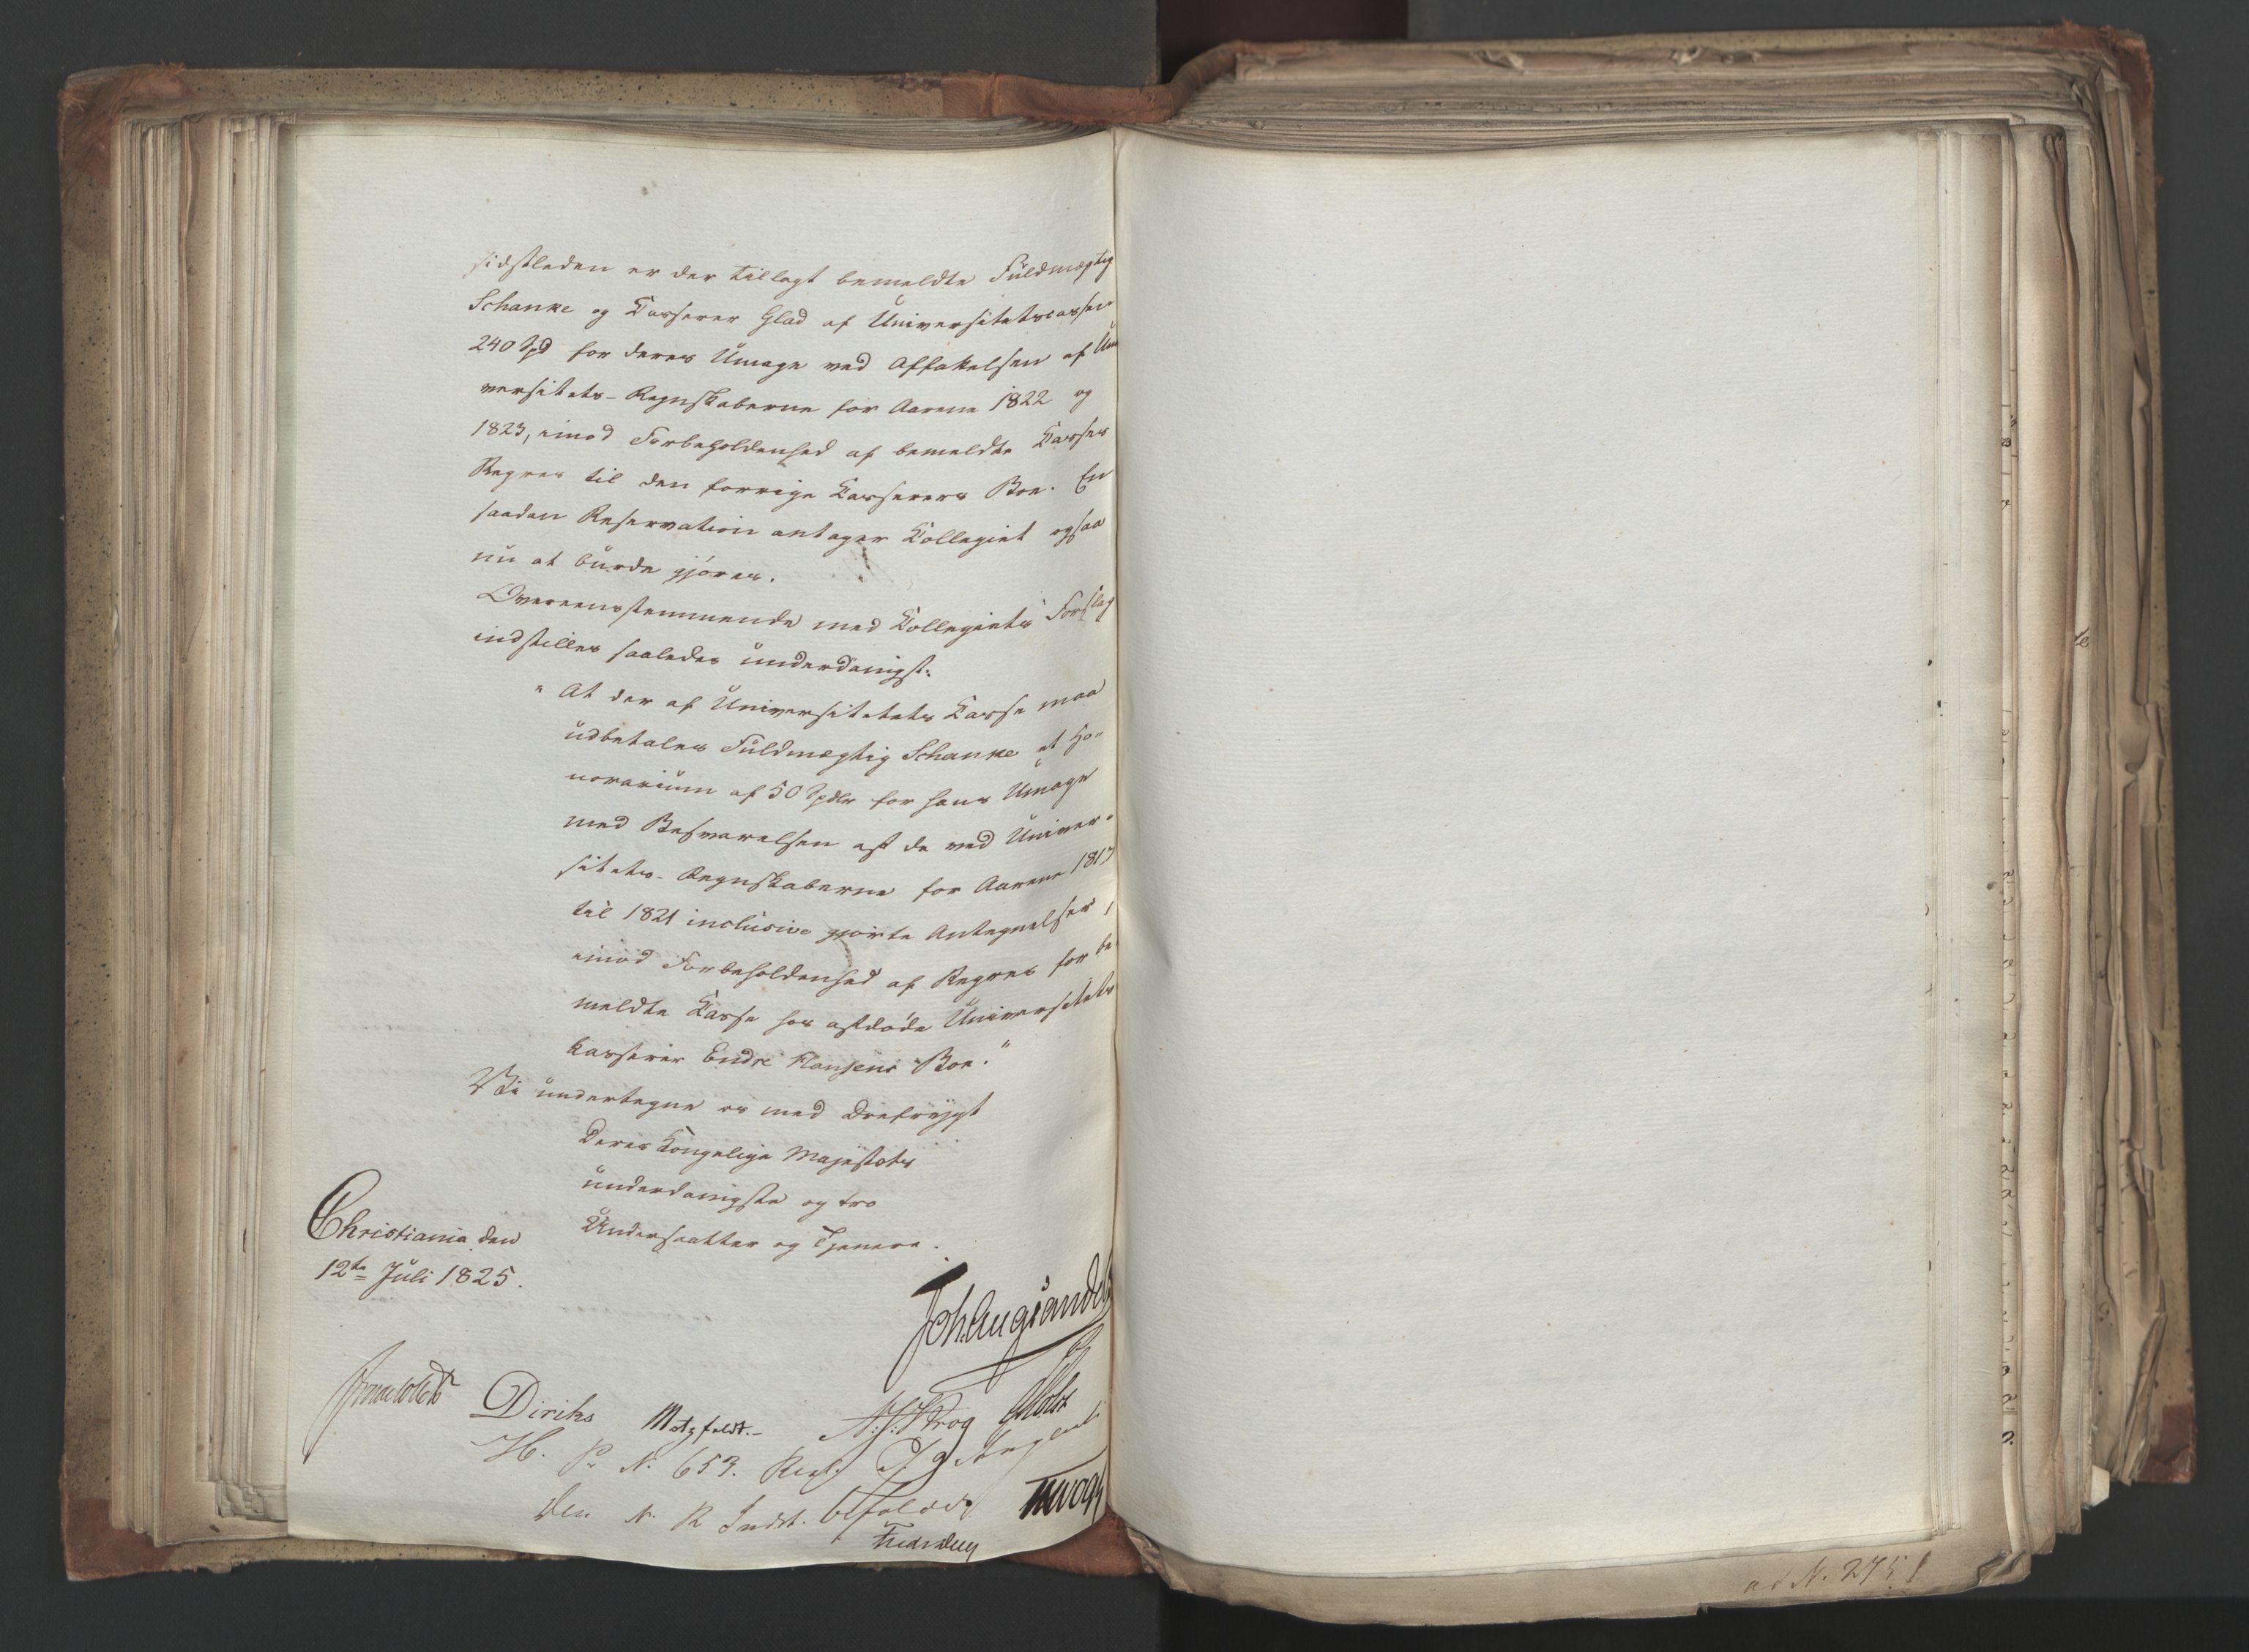 sidstleden er der tillagt bemeldte Fuldmægtig
Schanke og Casserer Glad af Universitetscassen
240 Spd for deres Umage ved Affattelsen af Uni
versitets-Regnskaberne for Aarene 1822 og
1823, imod Forbeholdenhed af bemeldte Casses
Regres til den forrige Casserers Boe. En
saadan Reservation antager Collegiet ogsaa
nu at burde gjøres.
Overeensstemmende med Collegiets Forslag
indstilles saaledes underdanigst:
"At der af Universitetets Casse maa
udbetales Fuldmægtig Schanke et Ho-
norarium af 50 Spdlr for hans Umage
med Besvarelsen af de ved Univer-
sitets-Regnskaberne for Aarene 1817
til 1821 inclusive gjorte Antegnelser,
imod Forbeholdenhed af Regres for be-
meldte Casse hos afdøde Universitets
kasserer Endre Hansens Boe."
Vi undertegne os med Dybfrygt
Deres Kongelige Majestæts
underdanigste og tro
Undersaatter og Tjenere.
Christiania den
12te Juli 1825.
Joh. Aug. Sandels
Diriks Motzfeldt.- Krog Holst
H. P. N. 653.
den N. R. Indst. bifaldes